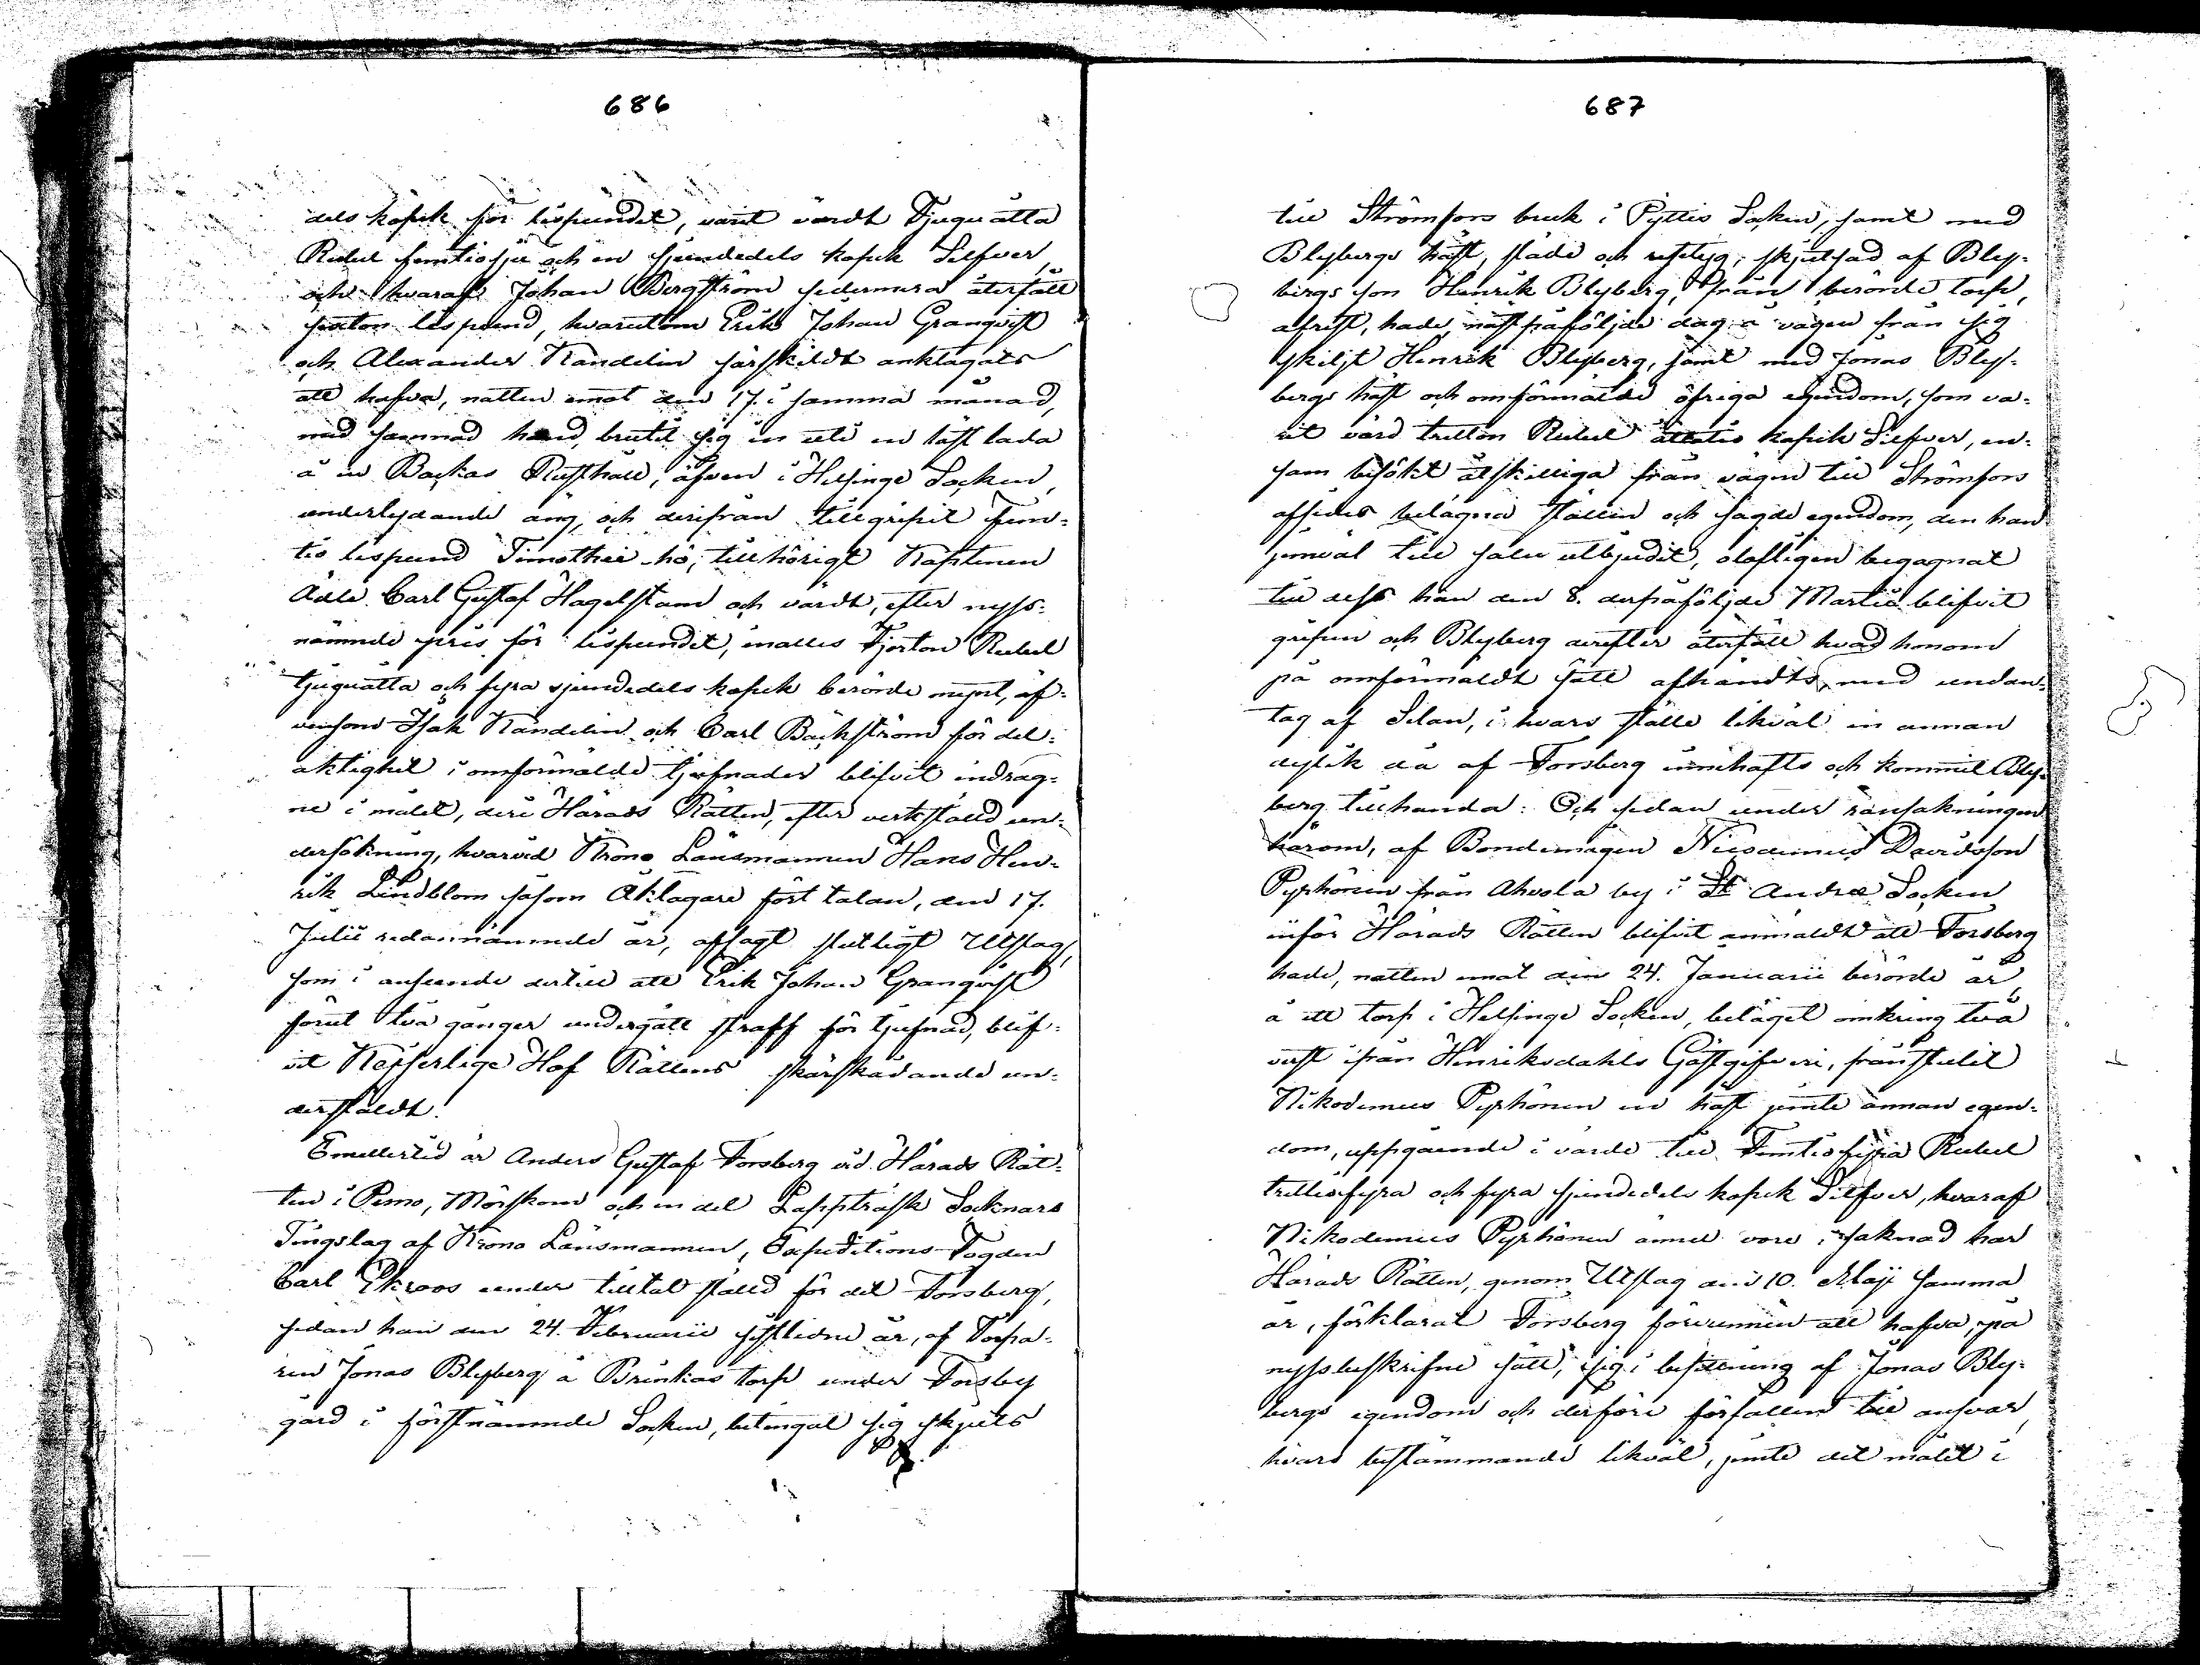 686
dels kopek för lispundet, varit värdt Tjuguåtta
Rubel femtiosju och en sjundedels kopek Silfver,
och hvaraf Johan Bergström sedermera återfått
sexton lispund, hvarutom Erik Johan Granqvist
och Alexander Kandelin särskildt anklagats
att hafva, natten emot den 17. i samma månad,
med samnad hand, brutit sig in uti en läst lada
å en Backas Rusthåll, äfven i Helsinge Socken,
underlydande äng, och derifrån tillgripit fem-
tio lispund Timothei-hö, tillhörigt Kaptenen
Ädle Carl Gustaf Hagelstam och värdt, efter nyss-
nämnde pris för lispundet, inalles Fjorton Rubel
tjuguåtta och fyra sjundedels kopek berörde mynt, äf-
vensom Isak Kandelin och Carl Bäckström för del-
aktighet i omförmälde tjufnader blifvit indrag-
ne i målet, deri Härads Rätten, efter verkställd un-
dersökning, hvarvid Krono Länsmannen Hans Hen-
rik Lindblom såsom Åklagare fört talan, den 17.
Julii redannämnde år, afsagt slutligt Utslag,
som i anseende dertill att Erik Johan Granqvist
förut två gånger undergått straff för tjufnad, blif-
vit Kejserlige Hof Rättens skärskådande un-
derstäldt.
Emellertid är Anders Gustaf Forsberg vid Härads Rät-
ten i Perno, Mörskom och en del Lappträsk Socknars
Tingslag af Krono Länsmannen, Expeditions-Fogden
Carl Ekroos under tilltal ställd för det Forsberg,
sedan han den 24. Februarii sistledne år, af Torpa-
ren Jonas Blyberg å Brinkas torp under Forsby
gård i förstnämnde Socken, betingat sig skjuts
687
till Strömfors bruk i Pyttis Socken, samt med
Blybergs häst, släde och resetyg, skjutsad af Bly-
bergs son Henrik Blyberg, från berörde torp,
afrest, hade, nästpåföljde dag å vägen från sig
skiljt Henrik Blyberg, samt med Jonas Bly-
bergs häst och omförmälde öfriga egendom, som va-
rit värd tretton Rubel åttatio kopek Silfver, en-
sam besökt åtskilliga från vägen till Strömfors
afsides belägna ställen och sagde egendom, den han
jemväl till salu utbjudit, olofligen begagnat
till dess han den 8. derpåföljde Martii blifvit
gripen och Blyberg derefter återfått hvad honom
på omförmäldt sätt afhändts, med undan-
tag af Selan, i hvars ställe likväl en annan
dylik då af Forsberg innehafts och kommit Bly-
berg tillhanda: Och sedan under ransakningen
härom, af Bondemågen Nicodemus Davidsson
Pyrhönen från Ahvola by i St Andreæ Socken
inför Härads Rätten blifvit anmäldt att Forsberg
hade, natten emot den 24. Januarii berörde år,
å ett torp i Helsinge Socken, beläget omkring två
verst ifrån Henriksdahls Gästgifveri, frånstulit
Nikodemus Pyrhönen en häst jemte annan egen-
dom, uppgående i värde till Femtiofyra Rubel
trettiofyra och fyra sjundedels kopek Silfver, hvaraf
Nikodemus Pyrhönen ännu vore i saknad har
Härads Rätten, genom Utslag den 10. Maji samma
år, förklarat Forsberg förvunnen att hafva, på
nyssbeskrifne sätt, sig i besittning af Jonas Bly-
bergs egendom och derföre förfallen till ansvar,
hvars bestämmande likväl, jemte det målet i